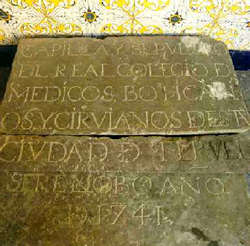 CAPILLA Y SEPU
EL REAL COLEGIO D
MEDICOS, BOTICARI
OS Y CIRVIANOS DE ESTA
CIVDAD D
SE RENOBO AÑO
D 1741